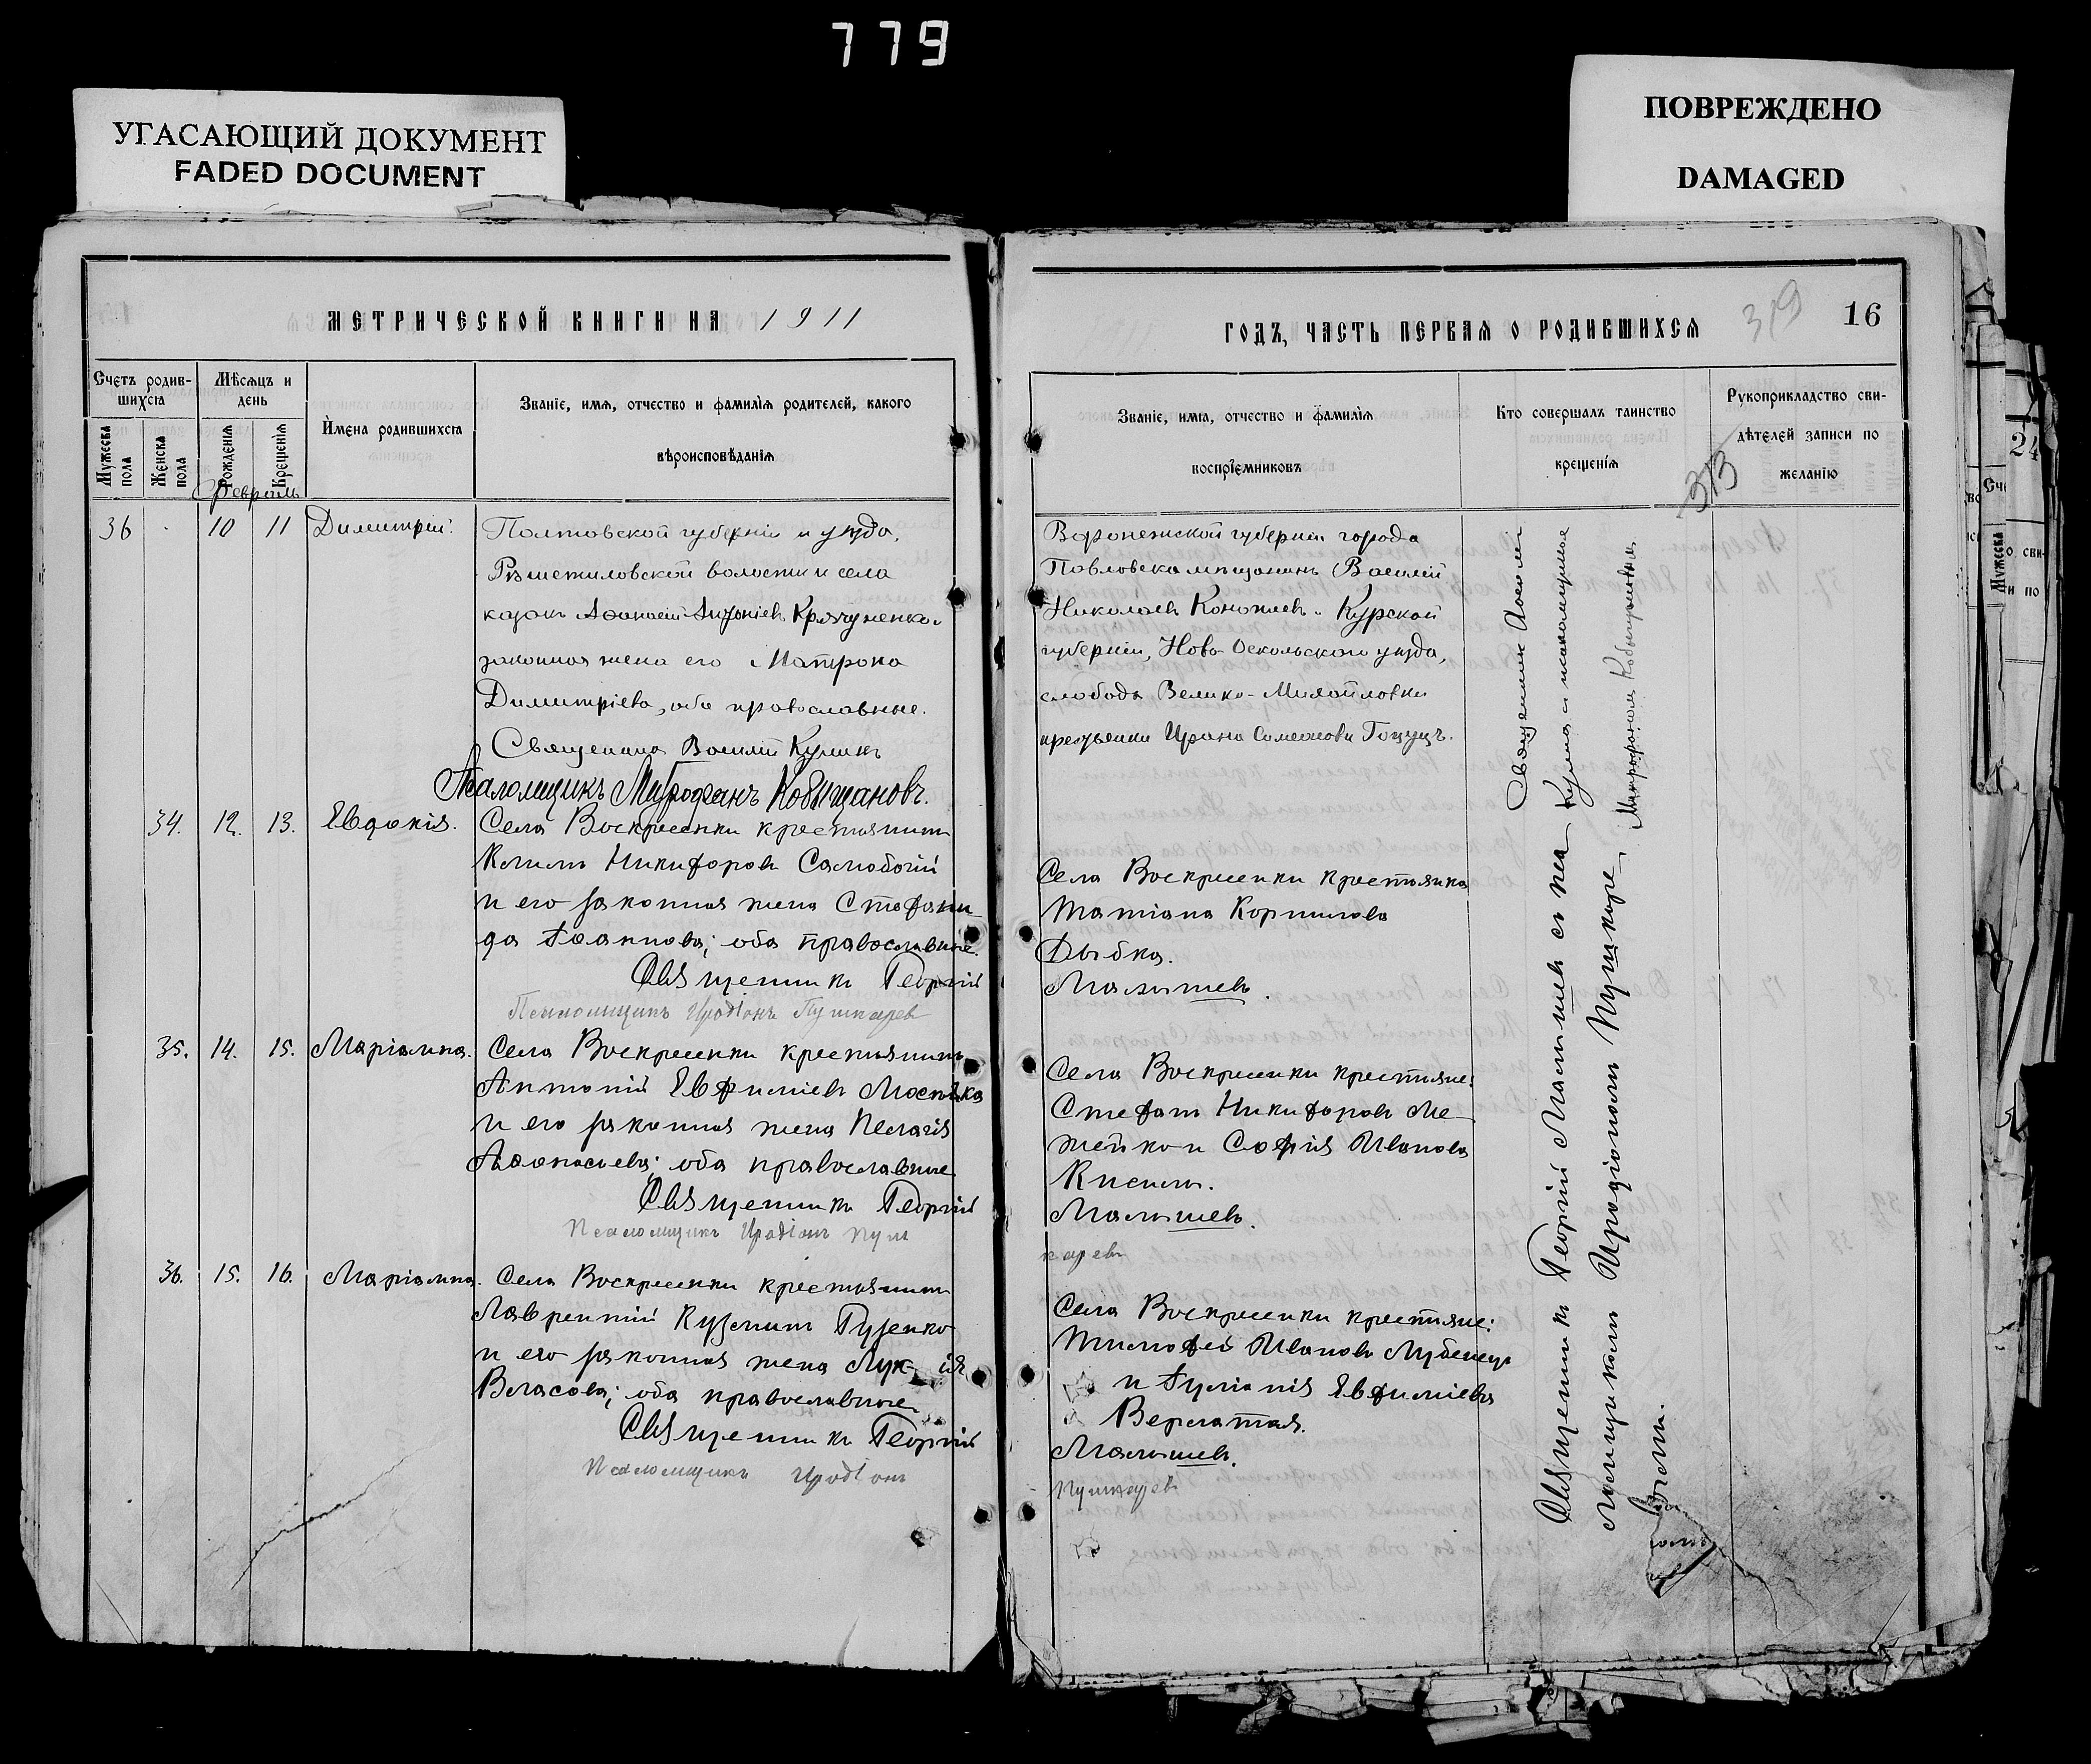 779
УГАСАЮЩИЙ ДОКУМЕНТ
FADED DOCUMENT
ПОВРЕЖДЕНО
DAMAGED
МЕТРИЧЕСКОЙ КНИГИ НА 1911
Счетъ родив-
шихся
Мѣсяцъ и
день
Мужеска
пола
Женска
пола
Рожденія
Крещенія
Имена родившихся
Званіе, имя, отчество и фамилія родителей, какого
вѣроисповѣданія
Февраль
36 10 11 Димитрій.
Полтовской губерніи и уѣзда,
Рѣшетиловской волости и села
казакъ Аѳанасій
законная жена его Матрона
Димитріева, оба православные.
Священникъ Василій Куликъ
Псаломщикъ Митрофанъ Кобыщановъ.
34. 12. 13. Евдокія.
Села Воскресенки крестьянинъ
Никифоровъ Самобогій
и его законная жена Стефани-
да Іоаннова; оба православные.
Священникъ Георгій
Псаломщикъ Иродіонъ Пушкарев
35. 14. 15. Маріамна.
Села Воскресенки крестьянинъ
Антоній Евфиміевъ
и его законная жена Пелагія
Аѳанасьева; оба православные
Священникъ Георгій
Псаломщикъ Иродіонъ Пуш
36. 15. 16. Маріамна.
Села Воскресенки крестьянинъ
Лаврентій Кузьминъ Гузенко
и его законная жена
Власова; оба православные
Священникъ Георгій
Псаломщикъ Иродіонъ
ГОДЪ, ЧАСТЬ ПЕРВАЯ О РОДИВШИХСЯ
319
16
Званіе, имя, отчество и фамилія
воспріемниковъ
Кто совершалъ таинство
крещенія
Рукоприкладство сви-
дѣтелей записи по
желанію
313
Воронежской губерніи города
Павловска мѣщанинъ Василій
Николаевъ Курской
губерніи, Ново Оскольскаго уѣзда,
слободы Велико-Михайловки
крестьянки Ирина Симеонова
Села Воскресенки крестьянка
Татіана Корнилова
Дыбка.
Малышевъ.
Села Воскресенки крестьяне:
Стефанъ Никифоровъ Ме-
и Софія Иванова
Кисиль.
Малышевъ.
каревъ
Села Воскресенки крестьяне:
Тимофей Ивановъ Лубенец
и Іуліанія Евфиміева
Малышевъ.
Пушкаревъ
Священникъ Василій
Куликъ и псаломщикъ
Митрофанъ Кобыщановъ
Священникъ Георгій Малышевъ съ пса
ломщикомъ Иродіономъ Пушкаре
вымъ.